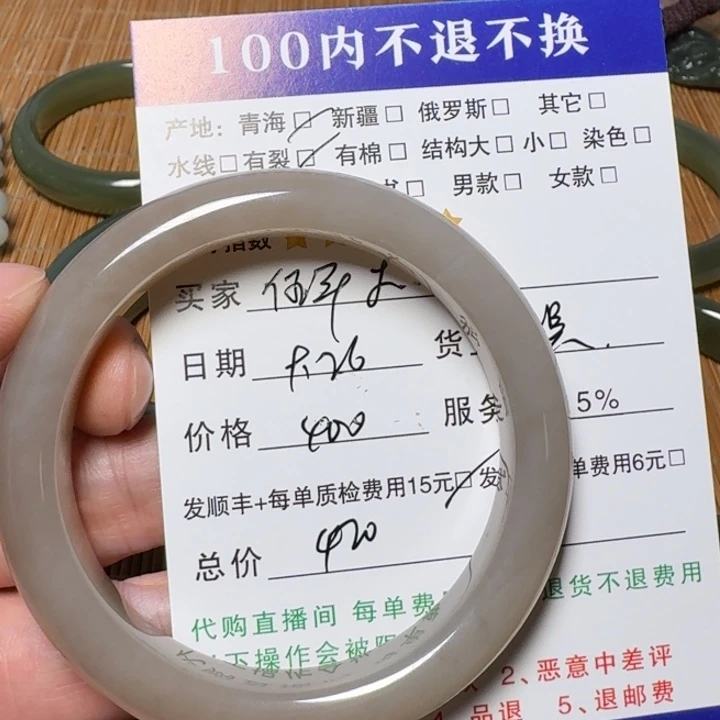 100内不退不换
产地: 青海□ 新疆□ 俄罗斯□ 其它□
水线□ 有裂□ 有棉□ 结构大□ 小□ 染色□
□ 男款□ 女款□
指数
买家
日期 5.26 货
价格 400 服务 5%
发顺丰+每单质检费用15元□ 发 单费用6元□
总价 420
代购直播间 每单费 退货不退费用
以下操作会被限 2、恶意中差评
品退 5、退邮费